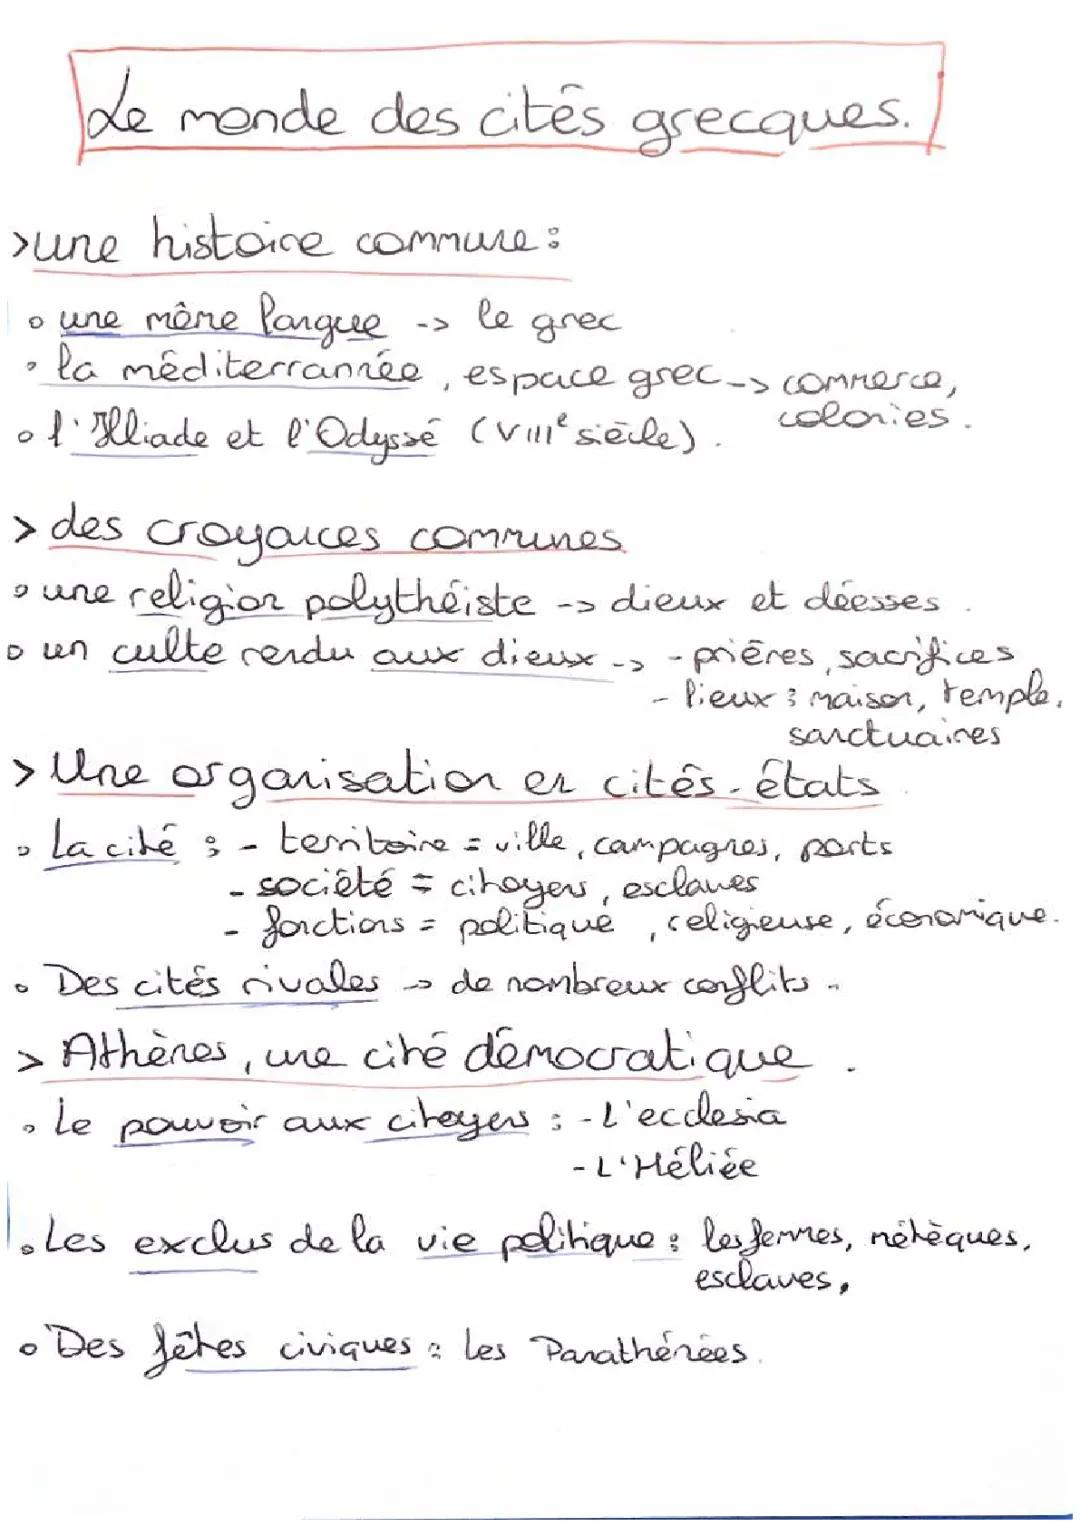 Le monde des cités grecques.
>une histoire commune :
• une même langue -> le grec
• la méditerrannée, espace grec -> commerce,
colonies.
• l'Illiade et l'Odyssé (VIIIe siècle).
> des croyances communes
• une religion polythéiste -> dieux et déesses.
• un culte rendu aux dieux -> - prières, sacrifices
- lieux : maison, temple,
sanctuaires
> Une organisation en cités-états
• La cité : - territoire = ville, campagnes, ports
- société = citoyens, esclaves
- fonctions = politique, religieuse, économique.
• Des cités rivales -> de nombreux conflits.
> Athènes, une cité démocratique.
• Le pouvoir aux citoyens : - L'ecclesia
- L'Héliée
• Les exclus de la vie politique : les femmes, métèques,
esclaves,
• Des fêtes civiques : Les Panathénées.